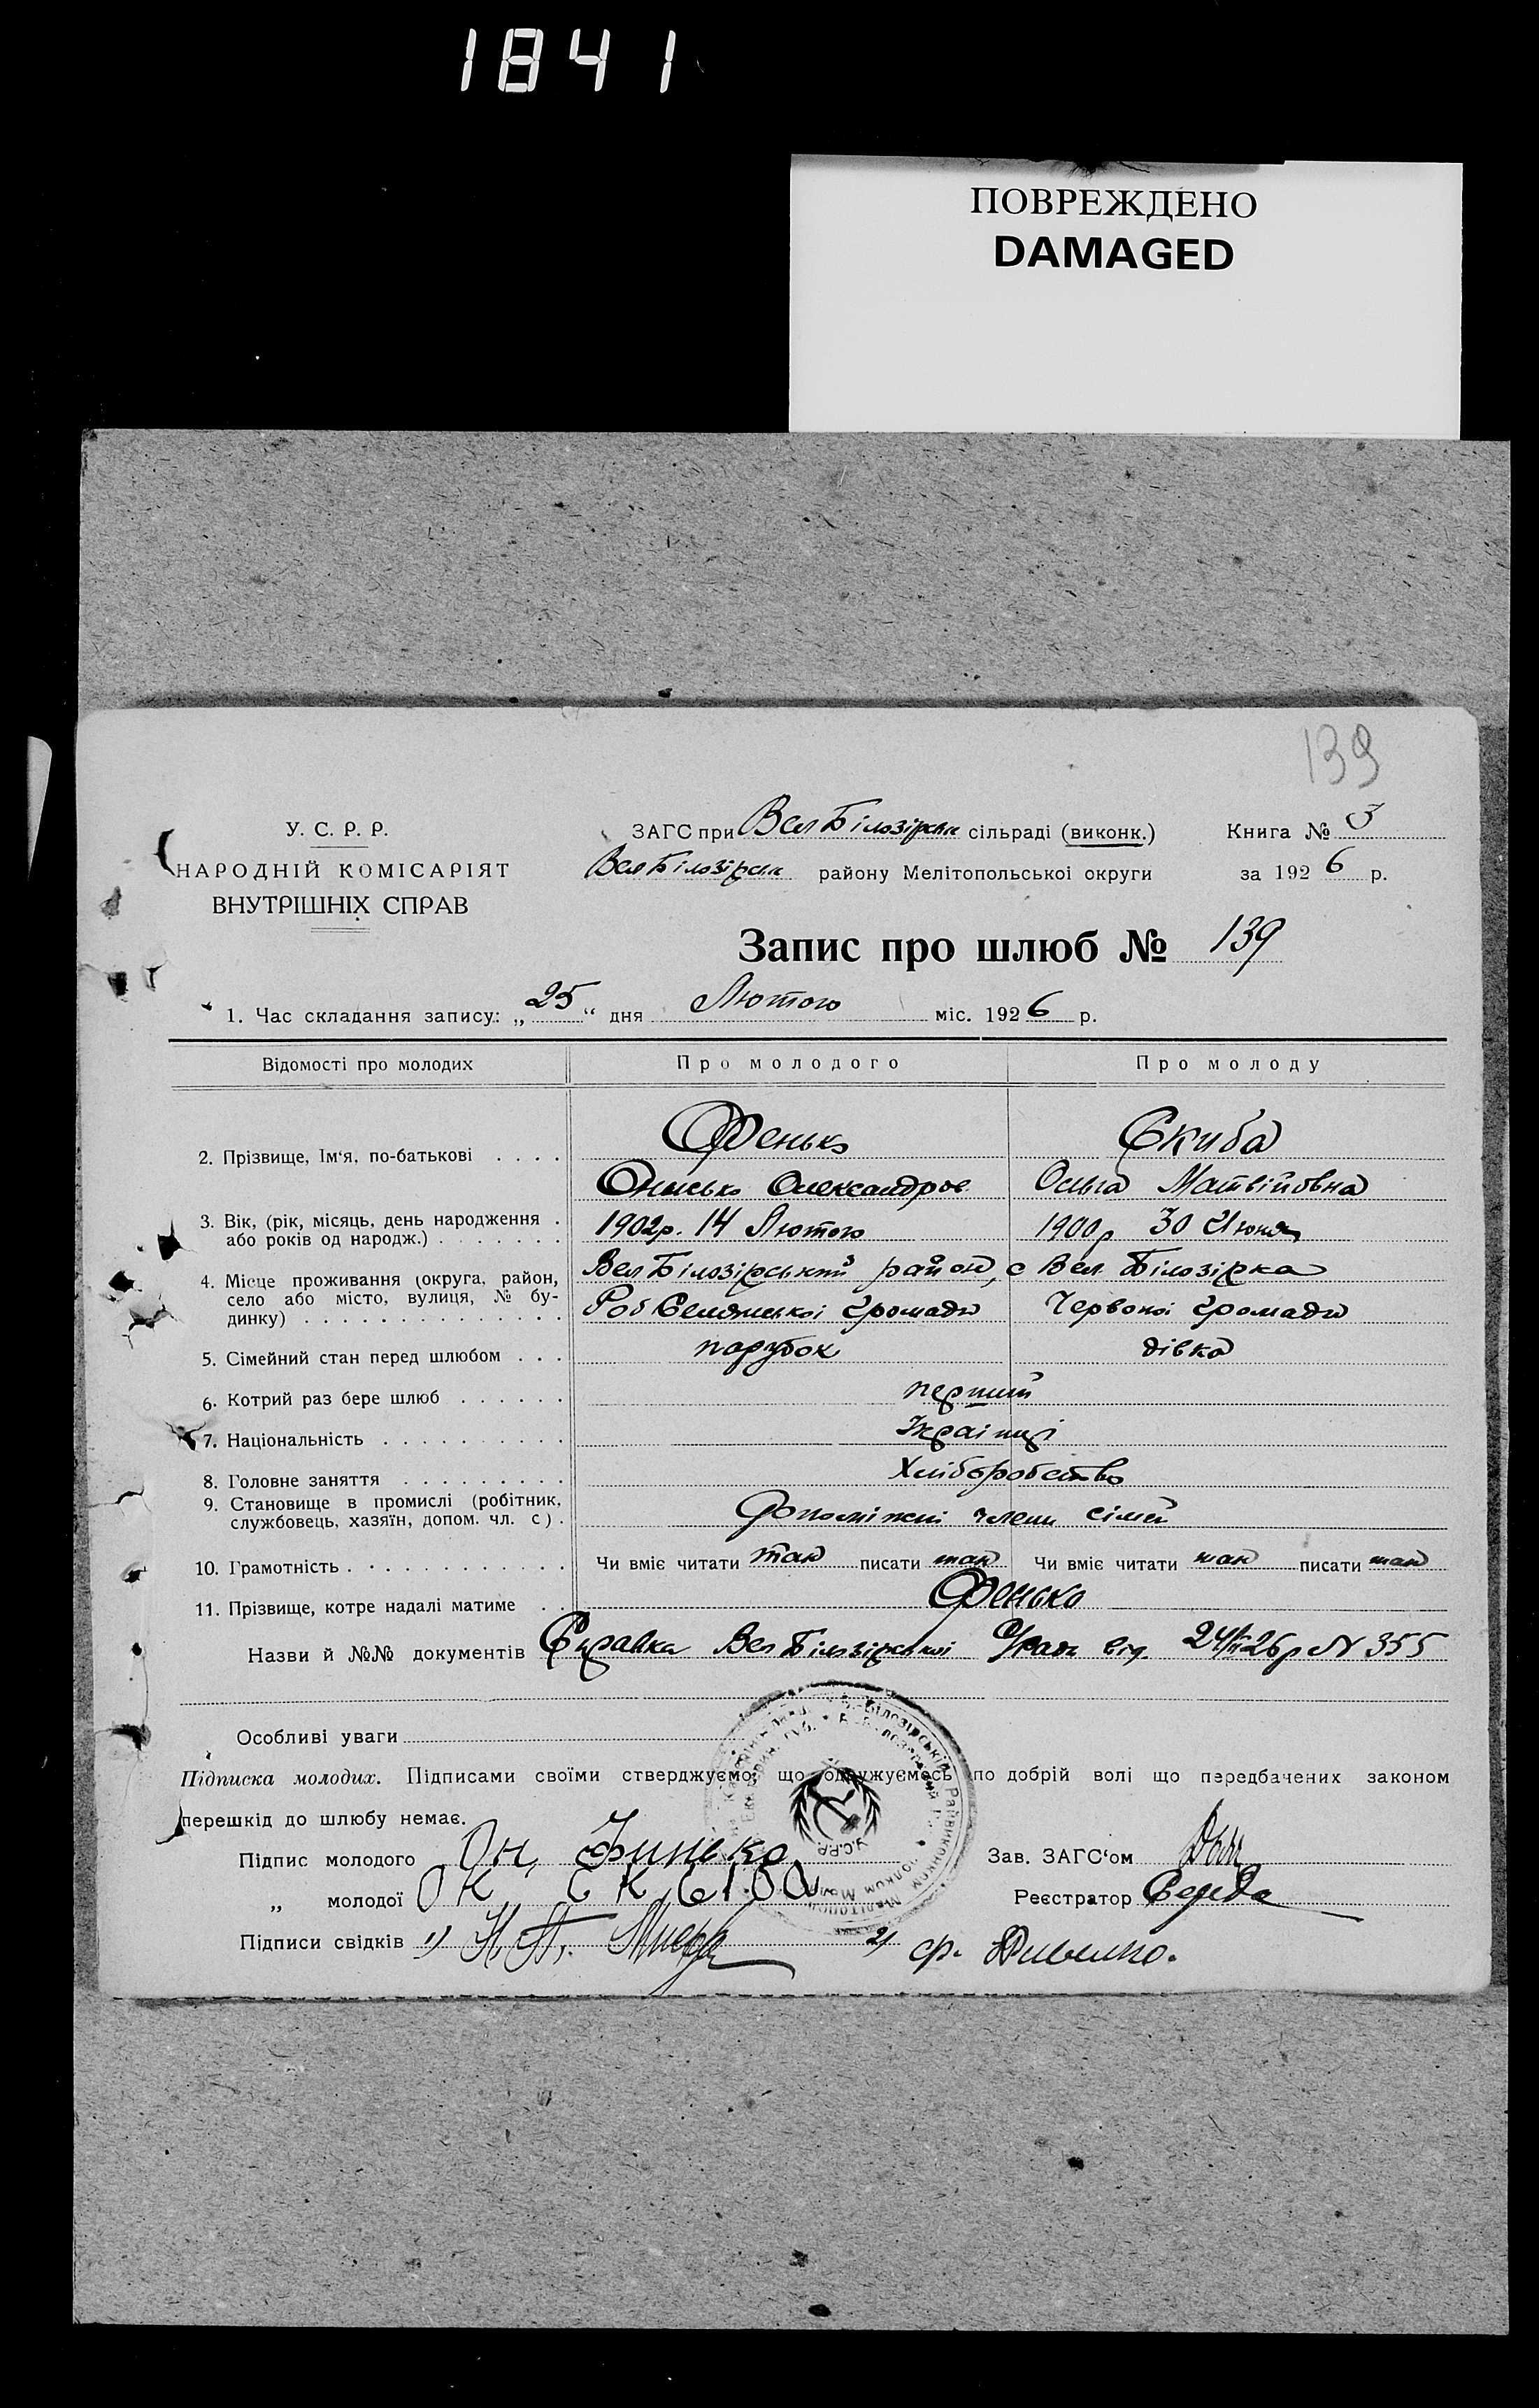 1841
ПОВРЕЖДЕНО
DAMAGED
139
У. С. Р. Р.
НАРОДНІЙ КОМІСАРІЯТ
ВНУТРІШНІХ СПРАВ
ЗАГС при Вел Білозірськ сільраді (виконк.)
Вел Білозірськ району Мелітопольської округи
Книга № 3
за 1926 р.
Запис про шлюб № 139
1. Час складання запису: „25“ дня Лютого міс. 1926 р.
Відомості про молодих Про молодого Про молоду
2. Прізвище, Ім‘я, по-батькові . . . . Фенько Скиба
Онисько Олександров. Ольга Матвійовна
3. Вік, (рік, місяць, день народження . 1902р. 14 Лютого 1900р 30 Июня
або років од народж.) . . . . . . .
4. Місце проживання (округа, район, Вел Білозірський район, с Вел. Білозірка
село або місто, вулиця, № бу- Роб Селянської громади Червоної громади
динку) . . . . . . . . . . . . . .
5. Сімейний стан перед шлюбом . . . парубок дівка
6. Котрий раз бере шлюб . . . . . . перший
7. Національність . . . . . . . . . . Українці
8. Головне заняття . . . . . . . . . Хліборобство
9. Становище в промислі (робітник, Допоміжні члени сімї
службовець, хазяїн, допом. чл. с) .
10. Грамотність . . . . . . . . . . . Чи вміє читати так писати так Чи вміє читати так писати так
11. Прізвище, котре надалі матиме . . Фенько
Назви й №№ документів Справка Вел Білозірської С/ради від 24/II 26р № 355
Особливі уваги
Підписка молодих. Підписами своїми стверджуємо, що одружуємось по добрій волі що передбачених законом
перешкід до шлюбу немає.
У.С.Р.Р.
Підпис молодого Он, Финько Зав. ЗАГС‘ом
„ молодої Реєстратор Середа
Підписи свідків 1) 2) ф.